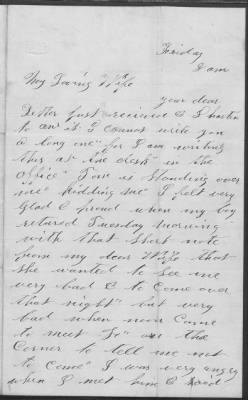 Friday
8 am
My Loving Wife
your dear
letter just received & I hasten
to an it I cannot write you
a long one for I am writing
this at the desk in the
office" Tom is standing over
me" kidding me" I felt very
glad & proud when my boy
returned Tuesday morning
with that short note
from my dear Wife that
she wanted to see me
very bad & to come over
that night" but very
bad when came
to meet on the
Corner to tell me not
to come" I was very angry
when I met him & said